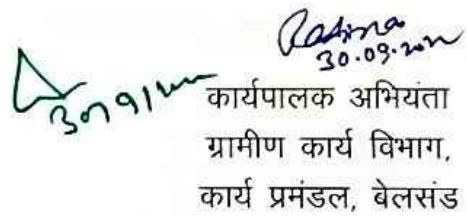 30.09.2022
कार्यपालक अभियंता
ग्रामीण कार्य विभाग,
कार्य प्रमंडल, बेलसंड